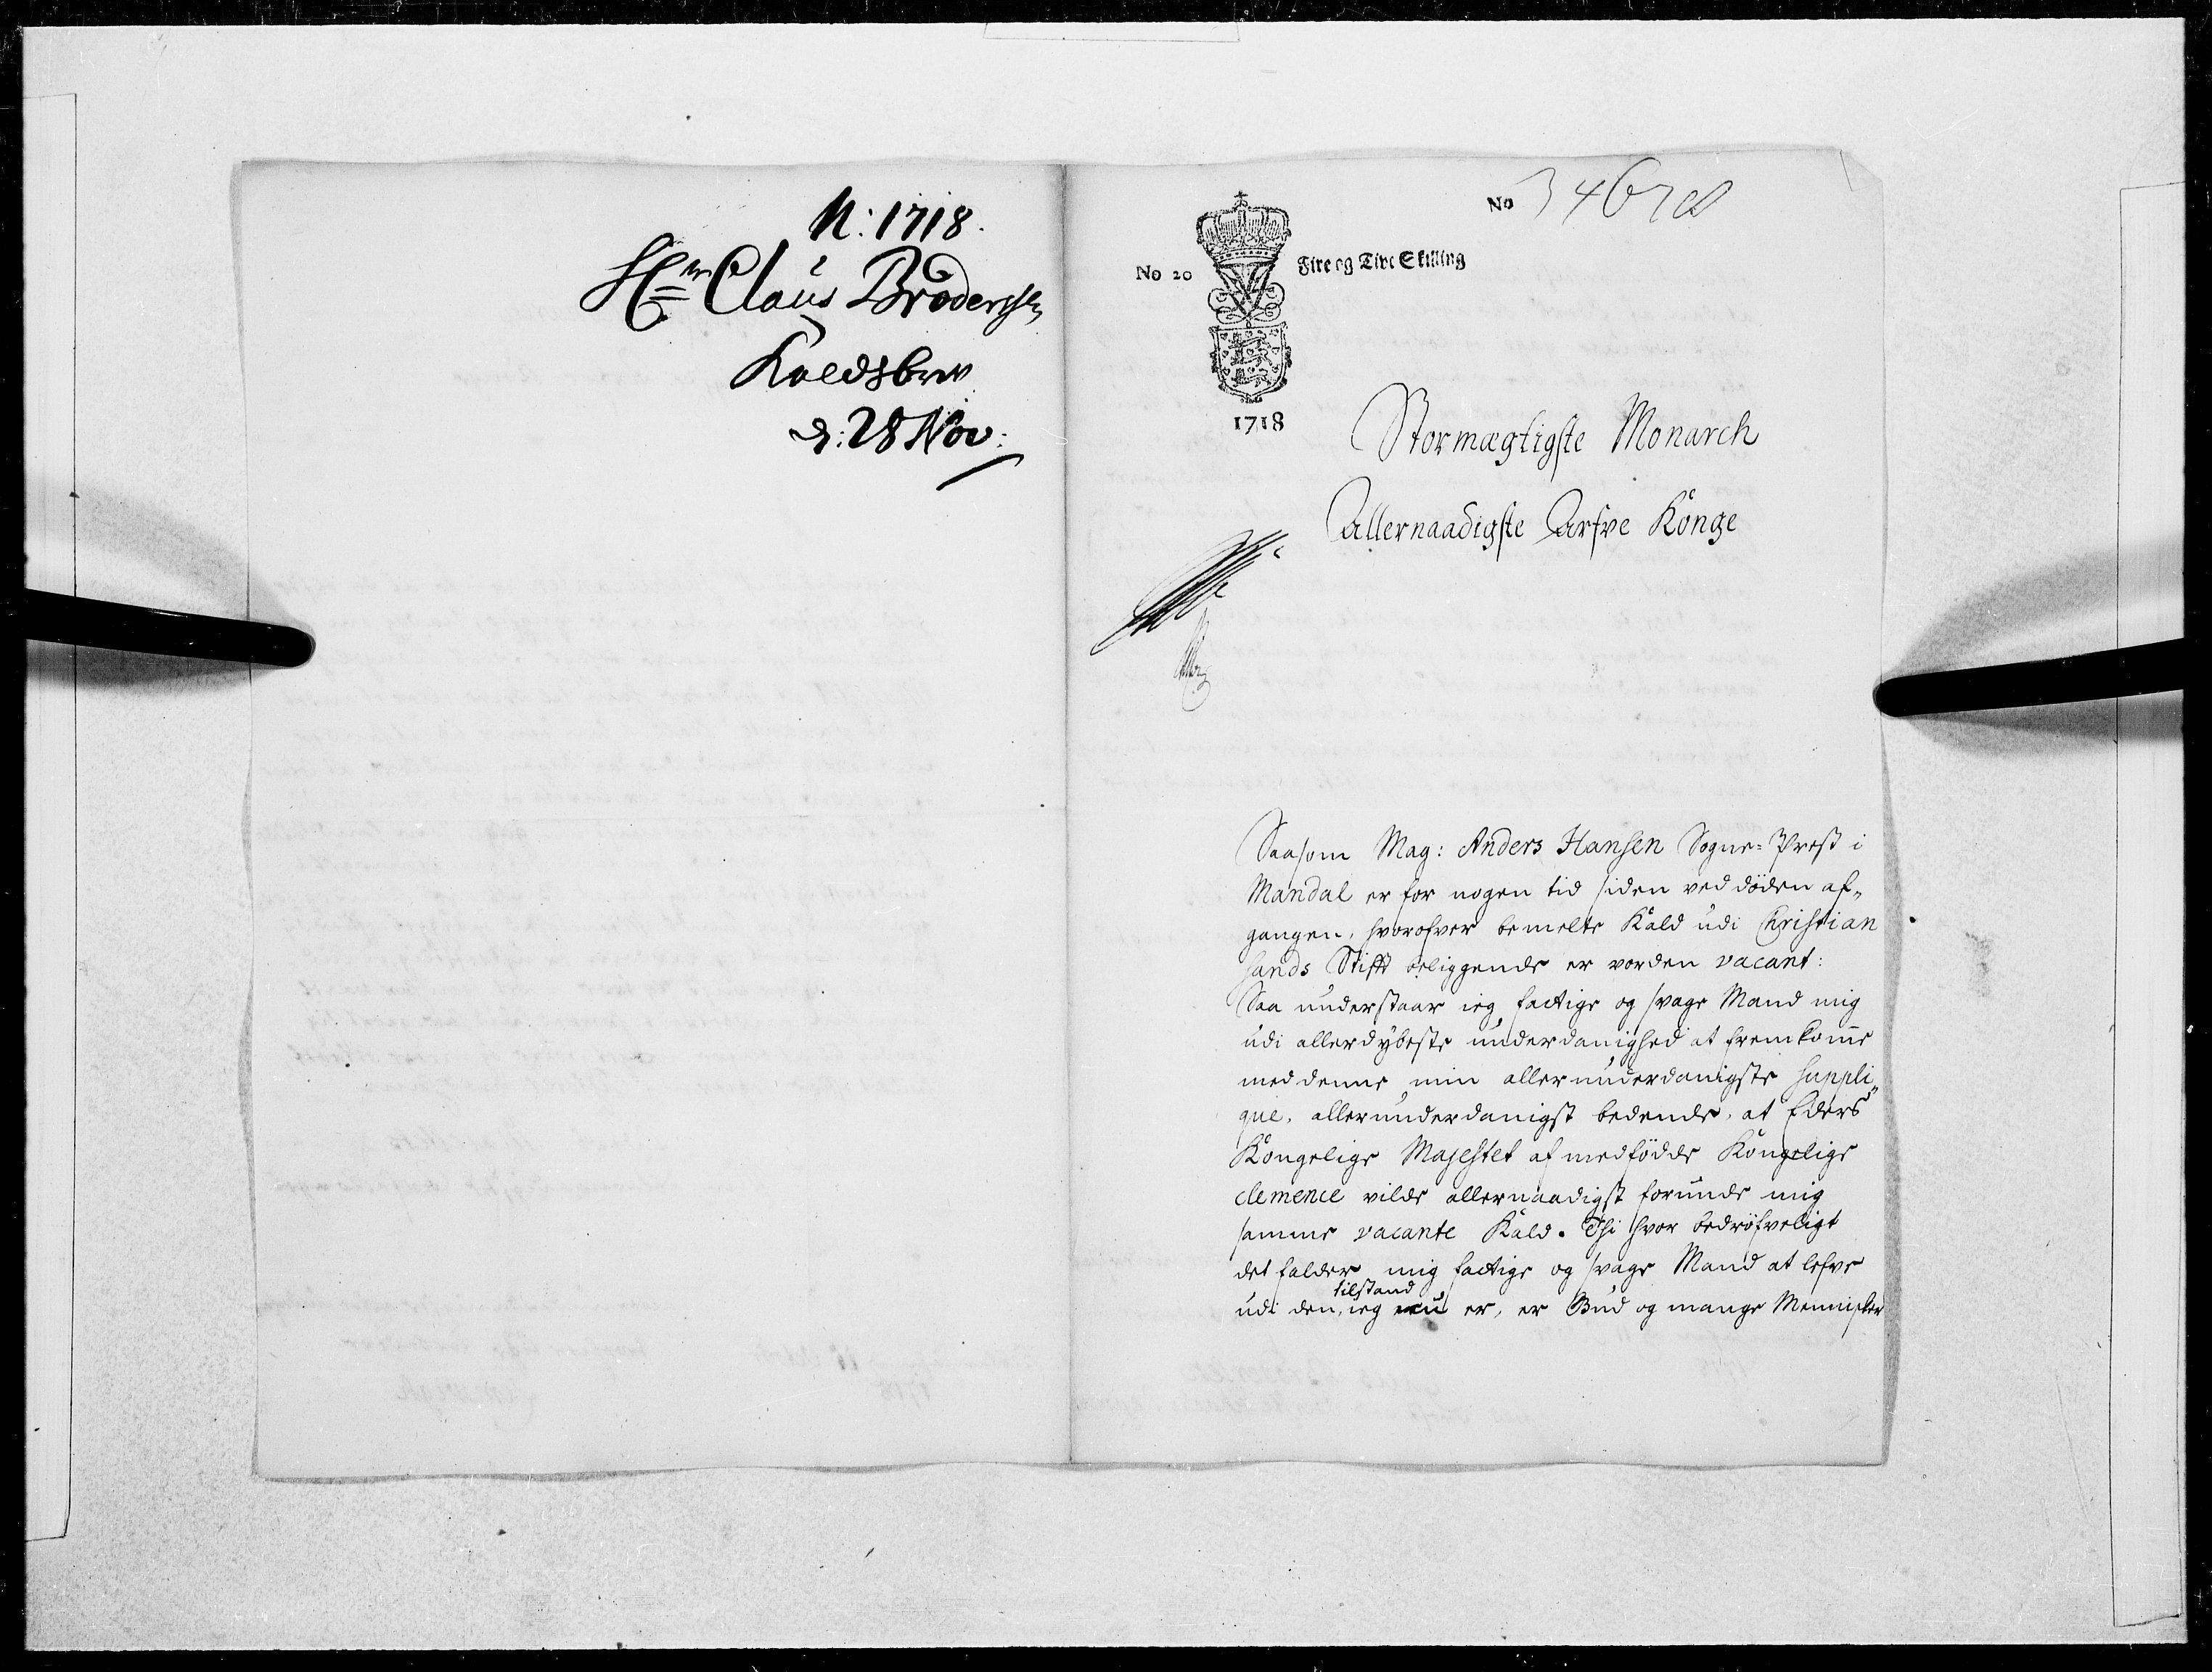 N: 1718.
Hr Claus Brodersen
Kaldsbrev
d: 28 Nov:
No 34678
No 20
Fire og Tive Skilling
1718
Stormægtigste Monarch
Allernaadigste Arfve Konge
Saasom Mag: Anders Hansen Sogne-Prest i
Mandal er for nogen tid siden ved döden af-
gangen, hvorofver bemelte Kald udi Christian
sands Stift beliggende er vorden vacant:
Saa understaar ieg fattige og svage Mand mig
udi allerdybeste underdanighed at fremkome
med denne min allerunderdanigste suppli-
que, allerunderdanigst bedende, at Eders
Kongelige Majestet af medfödde Kongelige
clemence vilde allernaadigst forunde mig
samme vacante Kald. Thi hvor bedröfveligt
det falder mig fattige og svage Mand at lefve
tilstand
udi den, ieg nu er, er Gud og mange Mennisker